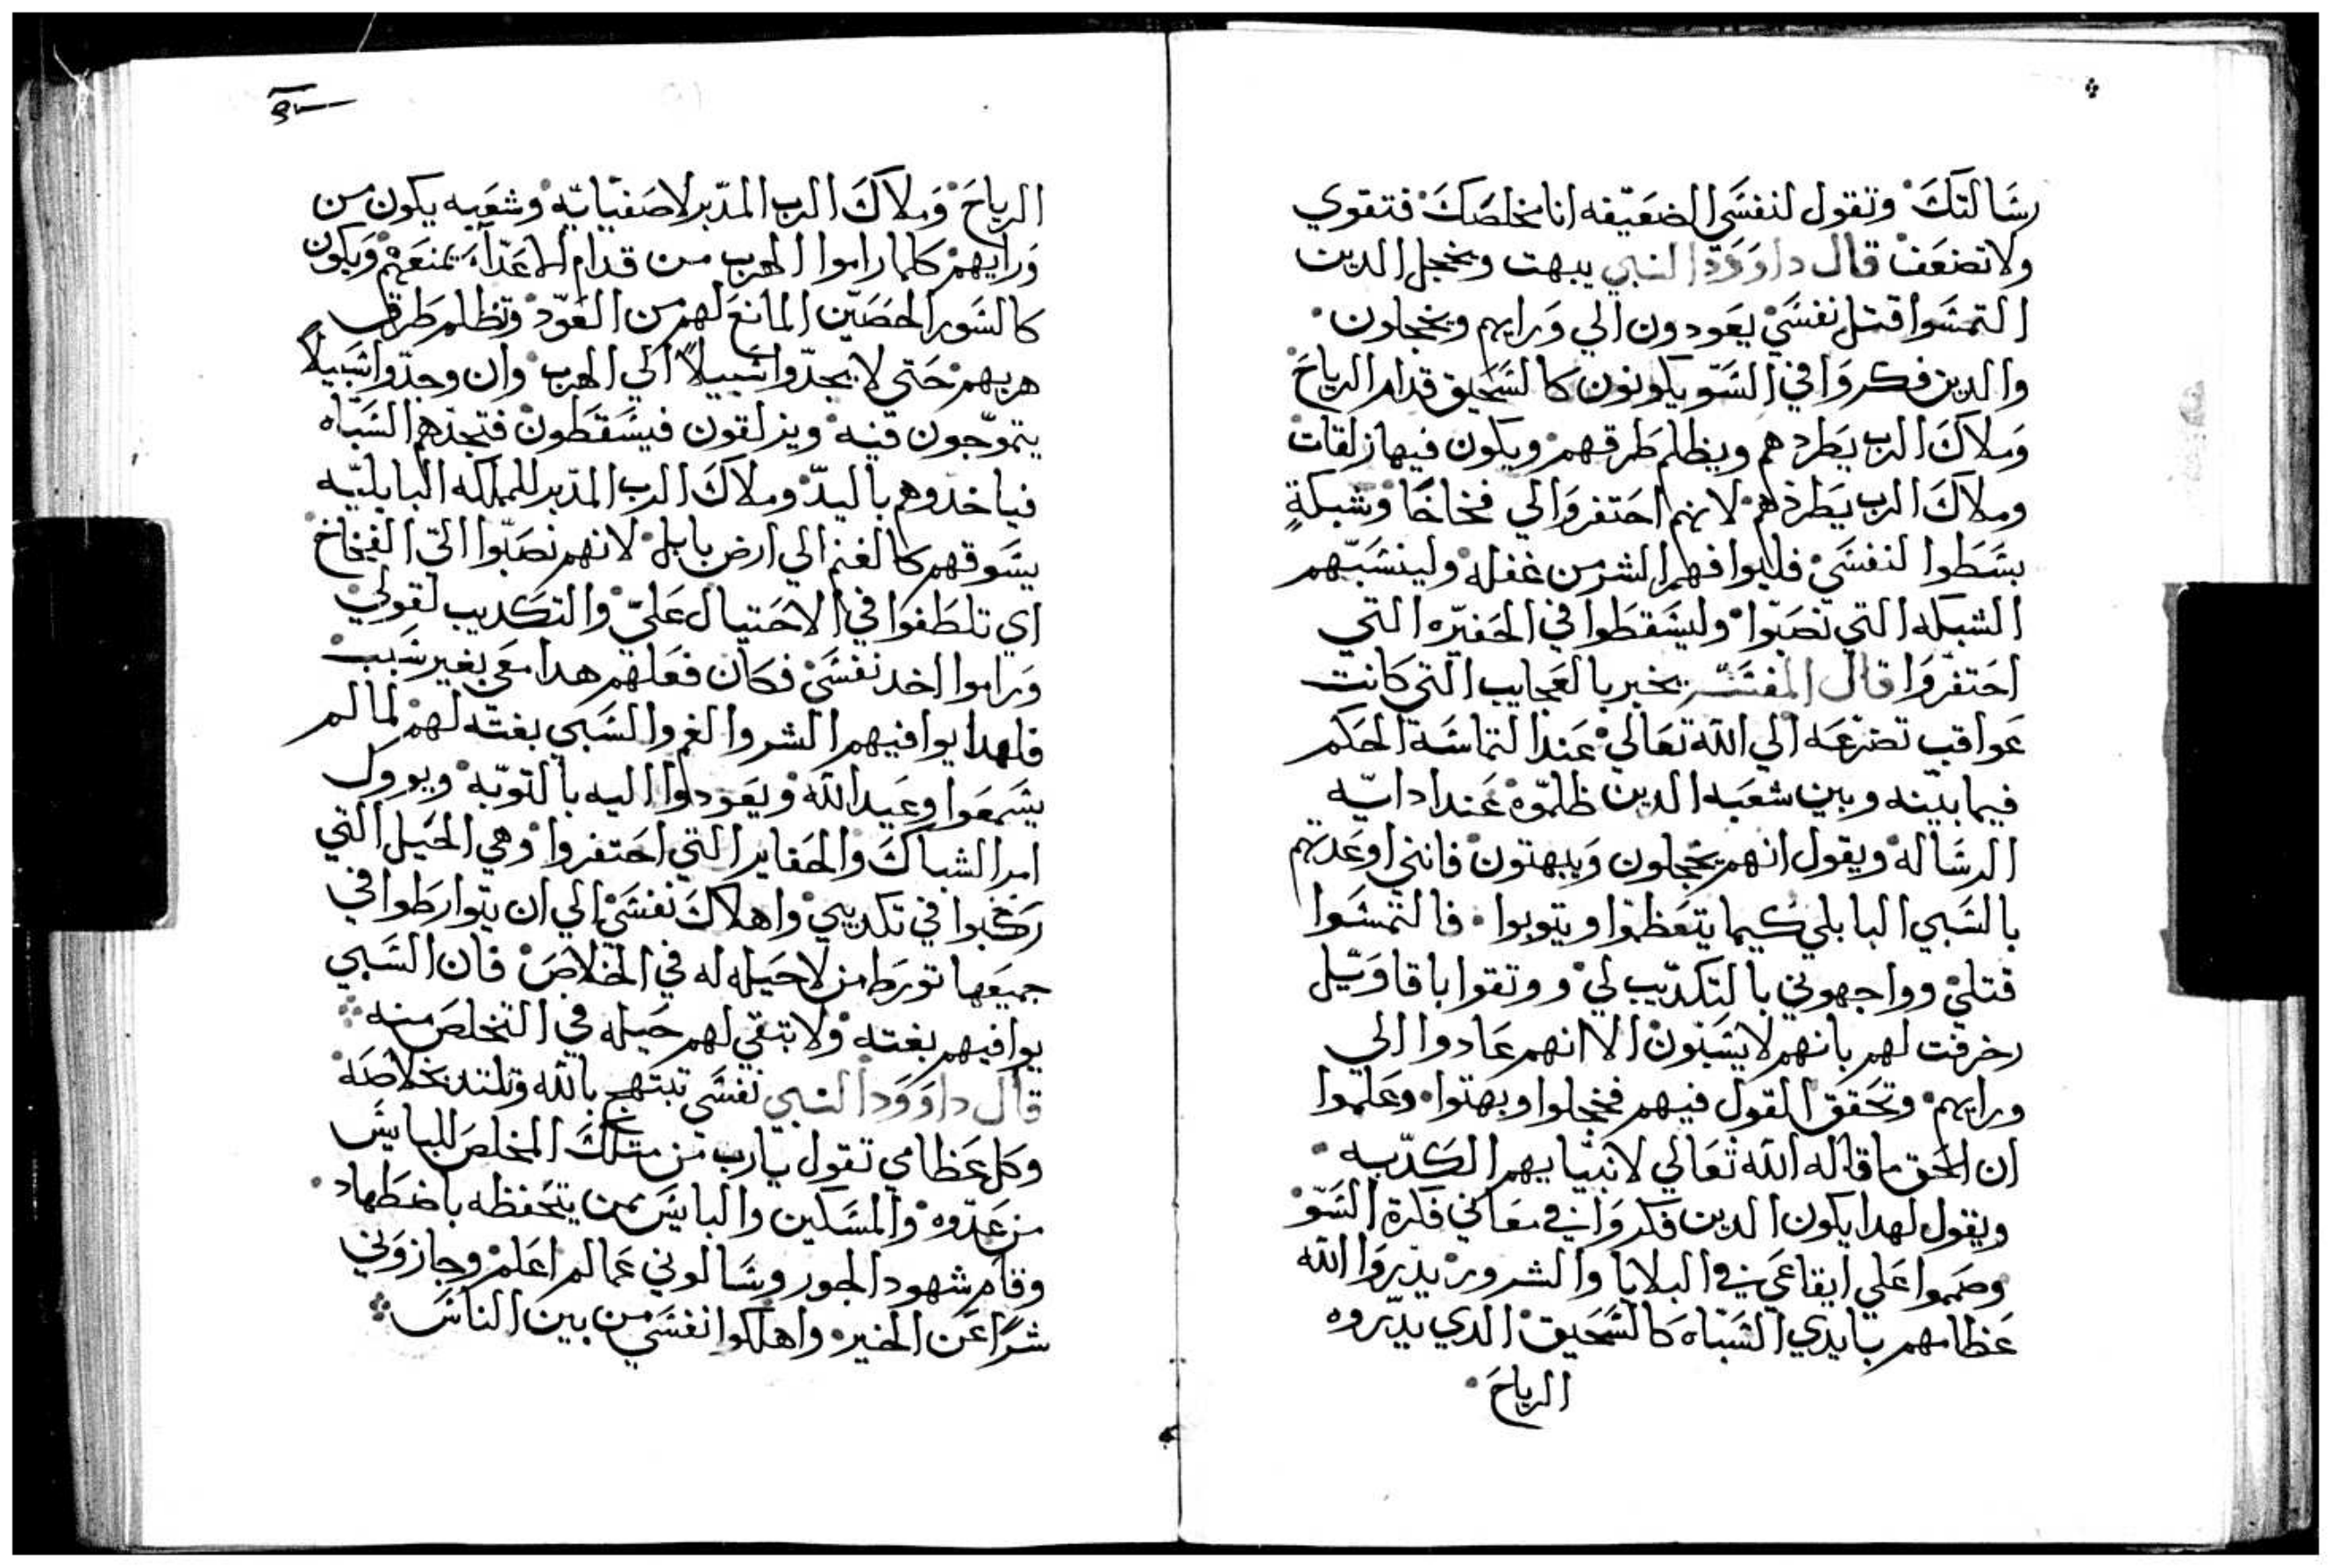 رسالتك وتقول لنفسي الضعيفه انا مخلصك فتقوي
ولا تضعف قال داوود النبي يبهت ويخجل الدين
التمسوا قتل نفسي يعودون الي ورايهم ويخجلون
والدين فكروا في السو يكونون كالسحيق قدام الرياح
وملاك الرب يطردهم ويظلم طرقهم ويكون فيها زلقات
وملاك الرب يطردهم لانهم احتفروا لي فخاخا وشبكة
بسطوا لنفسي فليوافهم الشر من غفله ولينشبهم
الشبكه التي نصبوا وليسقطوا في الحفيره التي
احتفروا قال المفسر يخبر بالعجايب التي كانت
عواقب تضرعه الي الله تعالي عند التماسه الحكم
فيما بينه وبين شعبه الدين ظلموه عند ادايه
الرساله ويقول انهم يخجلون ويبهتون فانني اوعدتهم
بالسبي البابلي كيما يتعظوا ويتوبوا فالتمسوا
قتلي وواجهوني بالتكديب لي ووتقوا باقاويل
زخرفت لهم بانهم لا يسبون الا انهم عادوا الي
ورايهم وتحقق القول فيهم فخجلوا وبهتوا وعلموا
ان الحق ما قاله الله تعالي لا نبيايهم الكدبه
ويقول لهدا يكون الدين فكروا في معاني فكرة السو
وصمموا علي ايقاعي في البلايا والشرور يدروا الله
عظامهم بايدي السباه كالسحيق الدي يدروه
الرياح
الرياح وملاك الرب المدبر لاصفيايه وشعبه يكون من
ورايهم كلما راموا الهرب من قدام الاعداء يمنعهم ويكون
كالسور الحصين المانع لهم من العود وتظلم طرق
هربهم حتي لا يجدوا سبيلاً الي الهرب وان وجدوا سبيلاً
يتموجون فيه ويزلقون فيسقطون فتجدهم السباه
فياخدوهم باليد وملاك الرب المدبر للمملكه البابليه
يسوقهم كالغنم الي ارض بابل لانهم نصبوا الي الفخاخ
اي تلطفوا في الاحتيال علي والتكديب لقولي
وراموا اخد نفسي فكان فعلهم هدا معي بغير سبب
فلهدا يوافيهم الشر والغم والسبي بغته لهم لما لم
يسمعوا وعيد الله ويعودوا اليه بالتوبه ويوول
امر الشباك والحفاير التي احتفروا وهي الحيل التي
رغبوا في تكديبي واهلاك نفسي الي ان يتوارطوا في
جميعها تورط من لا حيله له في الخلاص فان السبي
يوافيهم بغته ولا تبقي لهم حيله في التخلص منه
قال داوود النبي نفسي تبتهج بالله وتلتد بخلاصه
وكل عظامي تقول يارب من متلك المخلص للبايس
من عدوه والمسكين والبايس ممن يتحفظه باضطهاد
وقام شهود الجور وسالوني عما لم اعلم وجازوني
شرًا عن الخيره واهلكوا نفسي من بين الناس